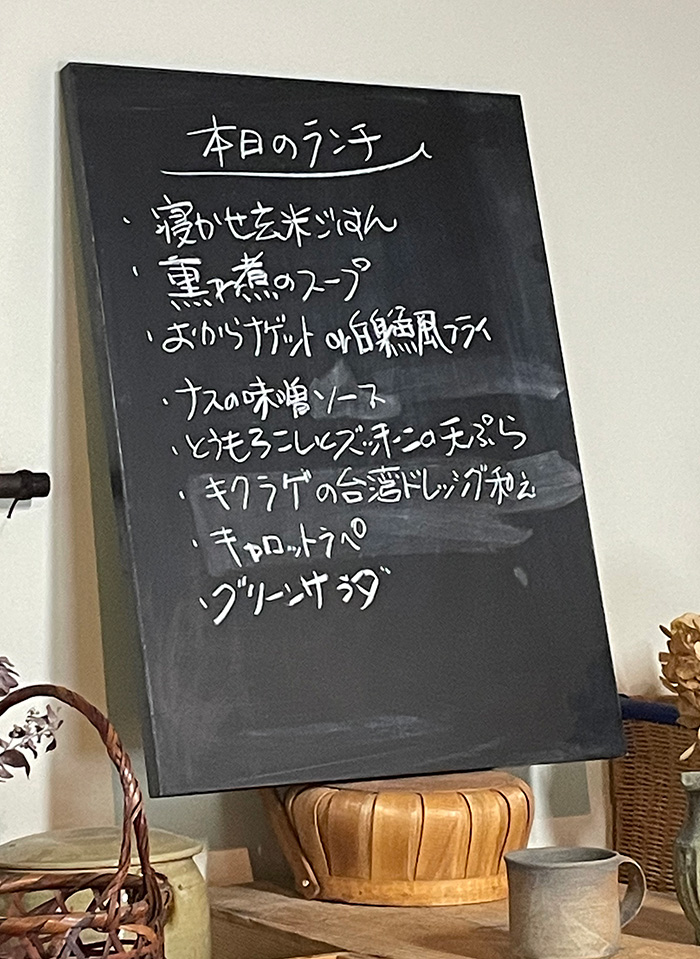 本日のランチ
・寝かせ玄米ごはん
・重ね煮のスープ
・おからナゲット or 白身魚風フライ
・ナスの味噌ソース
・とうもろこしとズッキーニの天ぷら
・キクラゲの台湾ドレッシング和え
・キャロットラペ
・グリーンサラダ